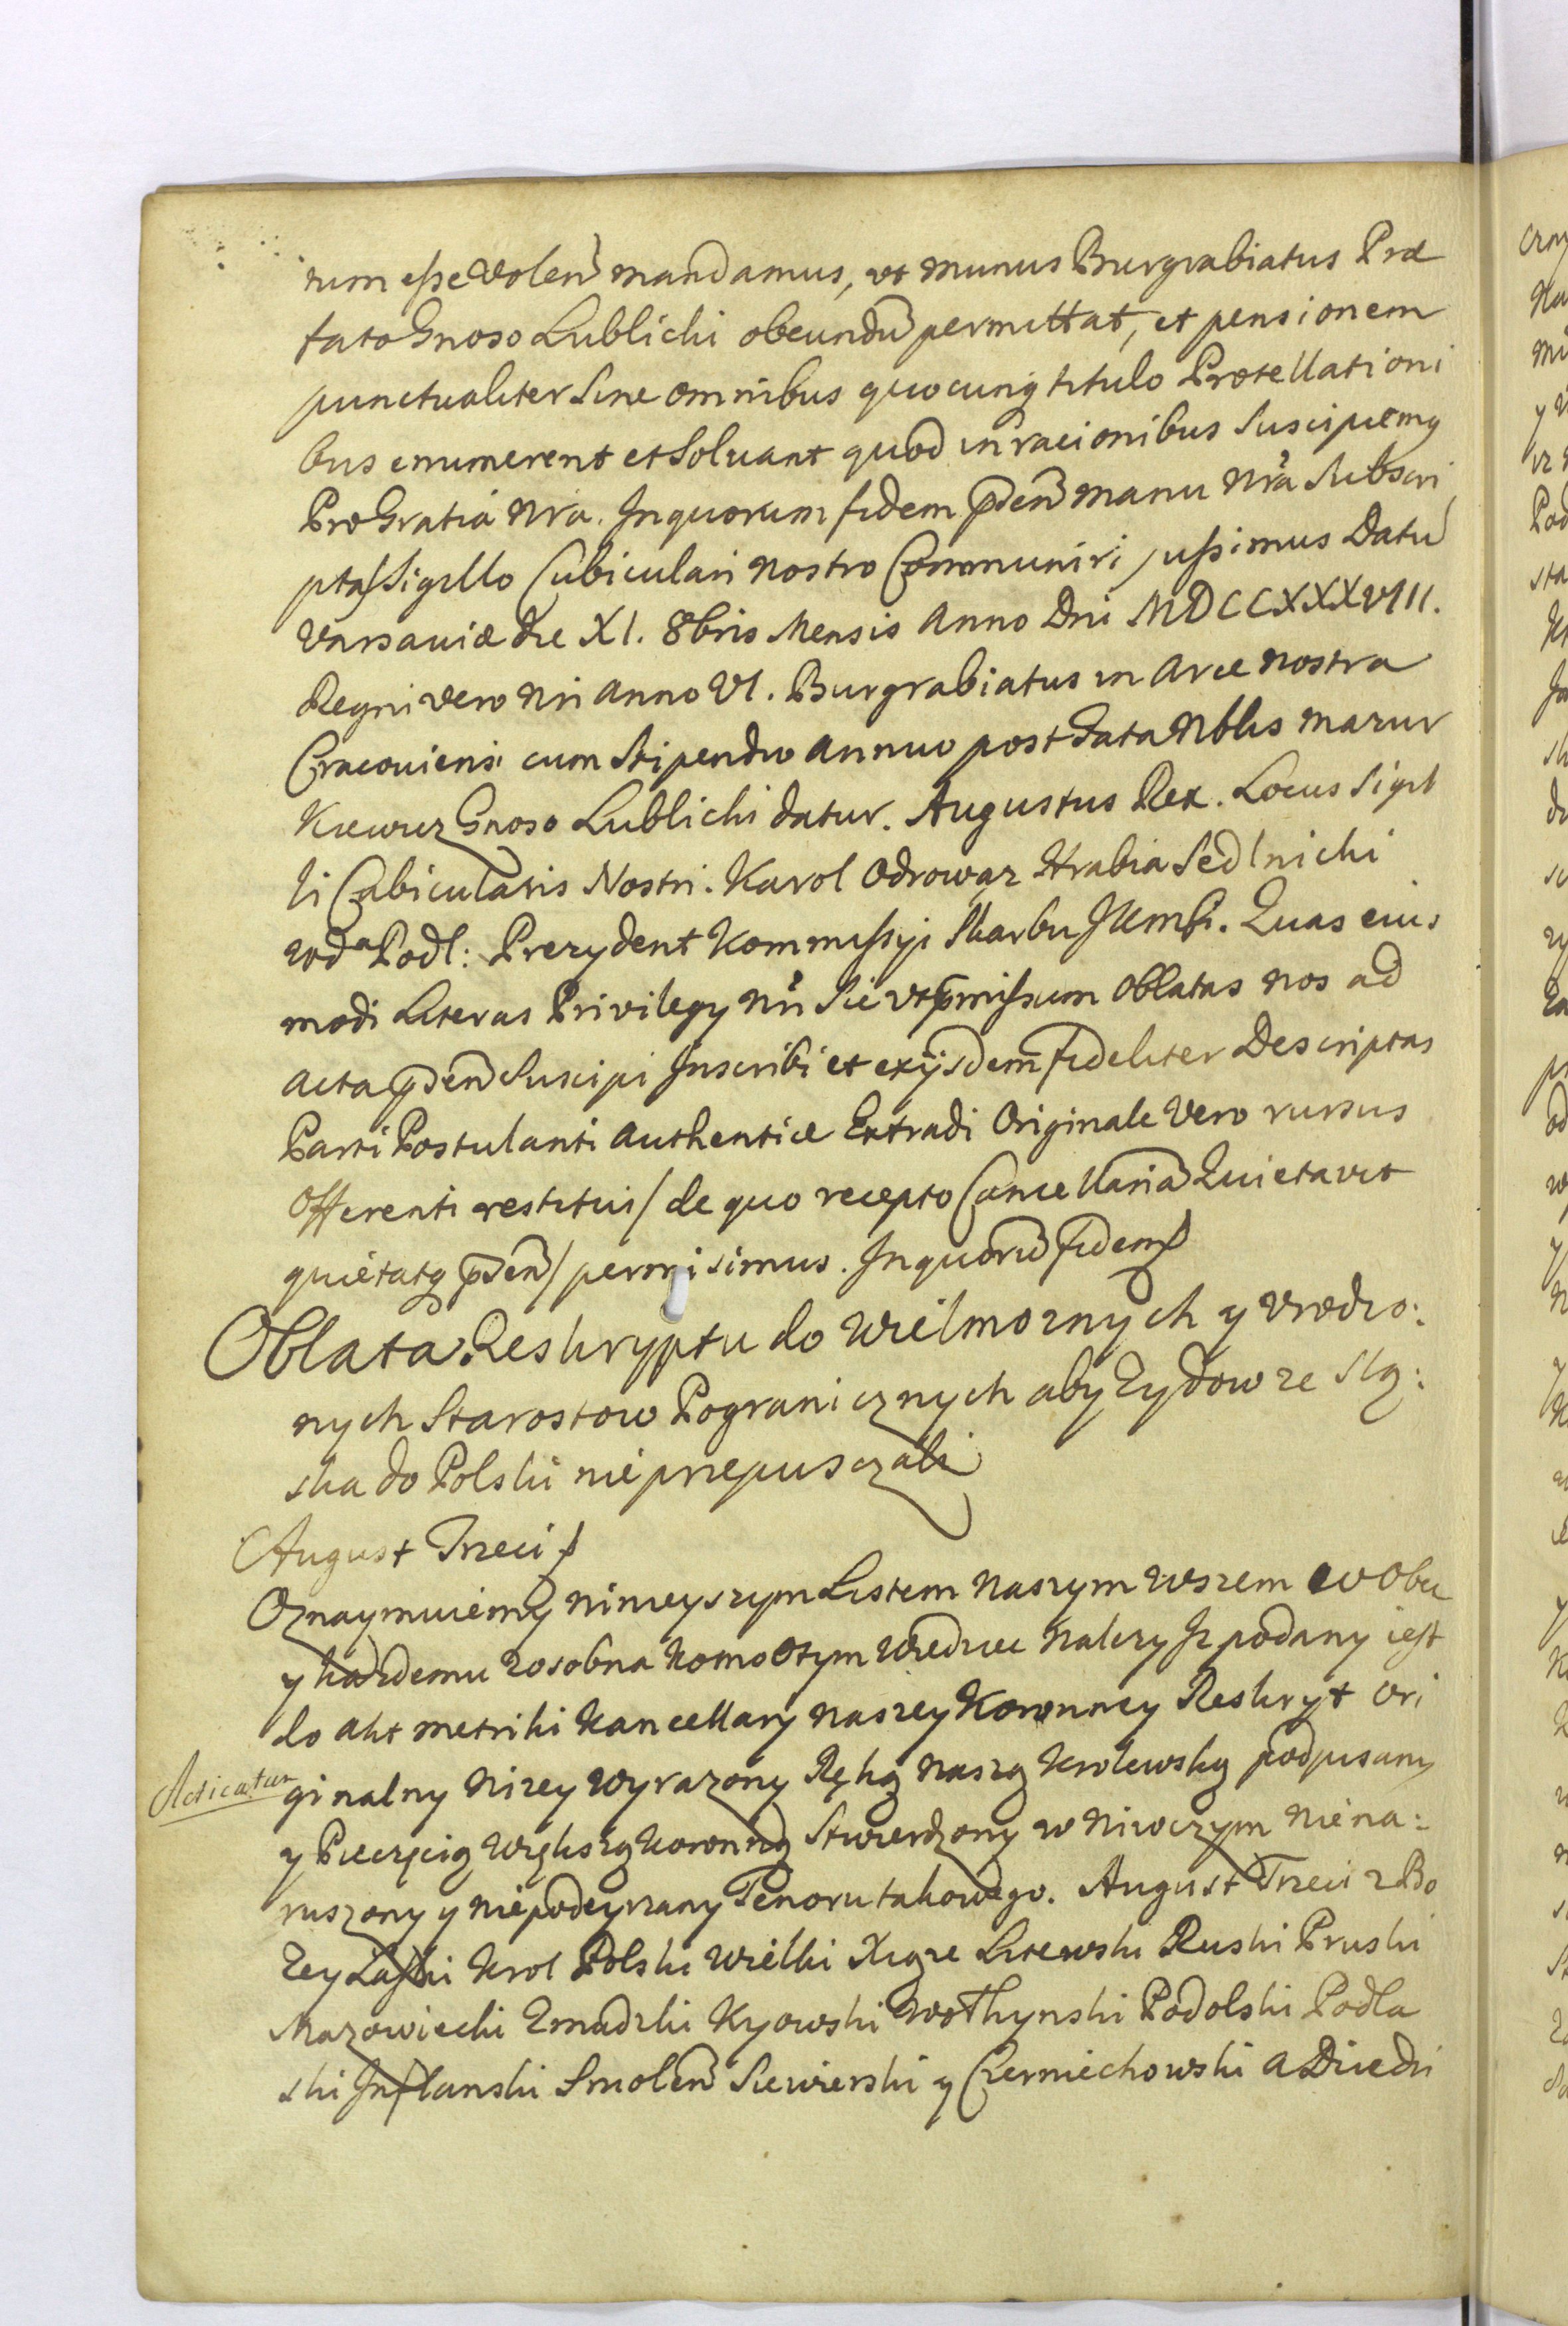 tum esse Volen mandamus, vt munus Burgrabiatus Præ
fato Gnoso Lublicki obeundu permittat, et pensionem
punctualiter Sine omnibus quocunq titulo Protellationi
bus enumerent et Soluant quod in racionibus Suscipiemq
Pro Gratia Nra. In quorum fidem pnsen manu Nra Subscri
ptas Sigillo Cubiculari nostro Communiri jussimus Datu
Varsauiæ die XI. 8bris Mensis Anno Dni MDCCXXXVIII.
Regni vero Nri Anno VI. Burgrabiatus in Arce nostra
Cracouiensi cum Stipendio annuo post data Nblis Mazur
kiewicz Gnoso Lublicki datur. Augustus Rex. Locus Sigil
li Cubicularis Nostri. Karol Odrowąz Hrabia Sedlnicki
wda Podl: Prezydent Kommissyi Skarbu JKmsci. Quas eius
modi Literas Privilegy Nri Sic vt pmissum Oblatas nos ad
Acta pnsen Suscipi Inscribi et exijsdem fideliter Descriptas
Parti Postulanti Authenticæ Extradi Originale Vero rursus
Offerenti restitui / de quo recepto Cancellaria Quietavit
quietatq pnsen / permisimus. In quoru fidem
Oblata Reskryptu do Wielmoznych y Vrodzo:
nych Starostow Pogranicznych aby Zydow ze Slą:
ska do Polski nieprzepuszczali
August Trzeci
Oznaymuiemy ninieyszym Listem Naszym Wszem wobec
y kazdemu zosobna komo otym Wiedziec Nalezy Jz podany iest
do Akt metriki Kancellary Naszey Koronney Reskryt Ori
Acticatur
ginalny Nizey Wyrazony Ręką Naszą Krolewską podpisany
y Pieczęcią Większą Koronną Stwierdzony w Niwczym Niena:
ruszony y Niepodeyrzany Tenoru takowego. August Trzeci z Bo
Zey Łaski Krol Polski Wielki Xiąze Litewski Ruski Pruski
Mazowiecki Zmudzki Kyowski Wołhynski Podolski Podla
ski Inflanski Smolen Siewierski y Czerniechowski A Dziedzi